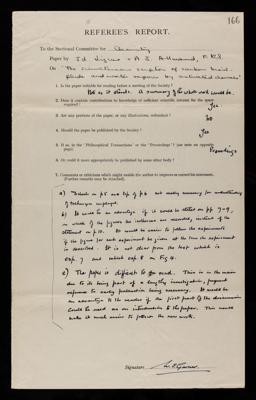 166
REFEREE'S REPORT.
To the Sectional Committee for Chemistry
Paper by Ed. & A. J. Allmand, F.R.S.
On "The simultaneous sorption of carbon
and water vapour by activated charcoal"
1. Is the paper suitable for reading before a meeting of the Society?
Not as it stands. A summary of the whole would be.
2. Does it contain contributions to knowledge of sufficient scientific interest for the space required?
Yes
3. Are any portions of the paper, or any illustrations, redundant?
No
4. Should the paper be published by the Society?
Yes
5. If so, in the "Philosophical Transactions" or the "Proceedings"? (see note on opposite page)
Proceedings
6. Or could it more appropriately be published by some other body?
7. Comments or criticisms which might enable the author to improve or correct his statement.
(Further remarks may be attached).
a) Details on p5 and top of p6 not really necessary for understanding
of technique employed.
b) It would be an advantage if it would be stated on pp 7-9,
in which of the figures the isotherms are recorded, instead of the
statement on p.10. It would be easier to follow the experiments
if the figure for each experiment be given at the time the experiment
is described. It is not clear from the text which is
exp. 7 and which exp. 8 on Fig 4.
c) The paper is difficult to read. This is in the main
due to its being part of a lengthy investigation, frequent
reference to early publication being necessary. It would be
an advantage to the reader if the first part of the discussion
could be used as an introduction to the paper. This would
make it much easier to follow the new work.
Signature